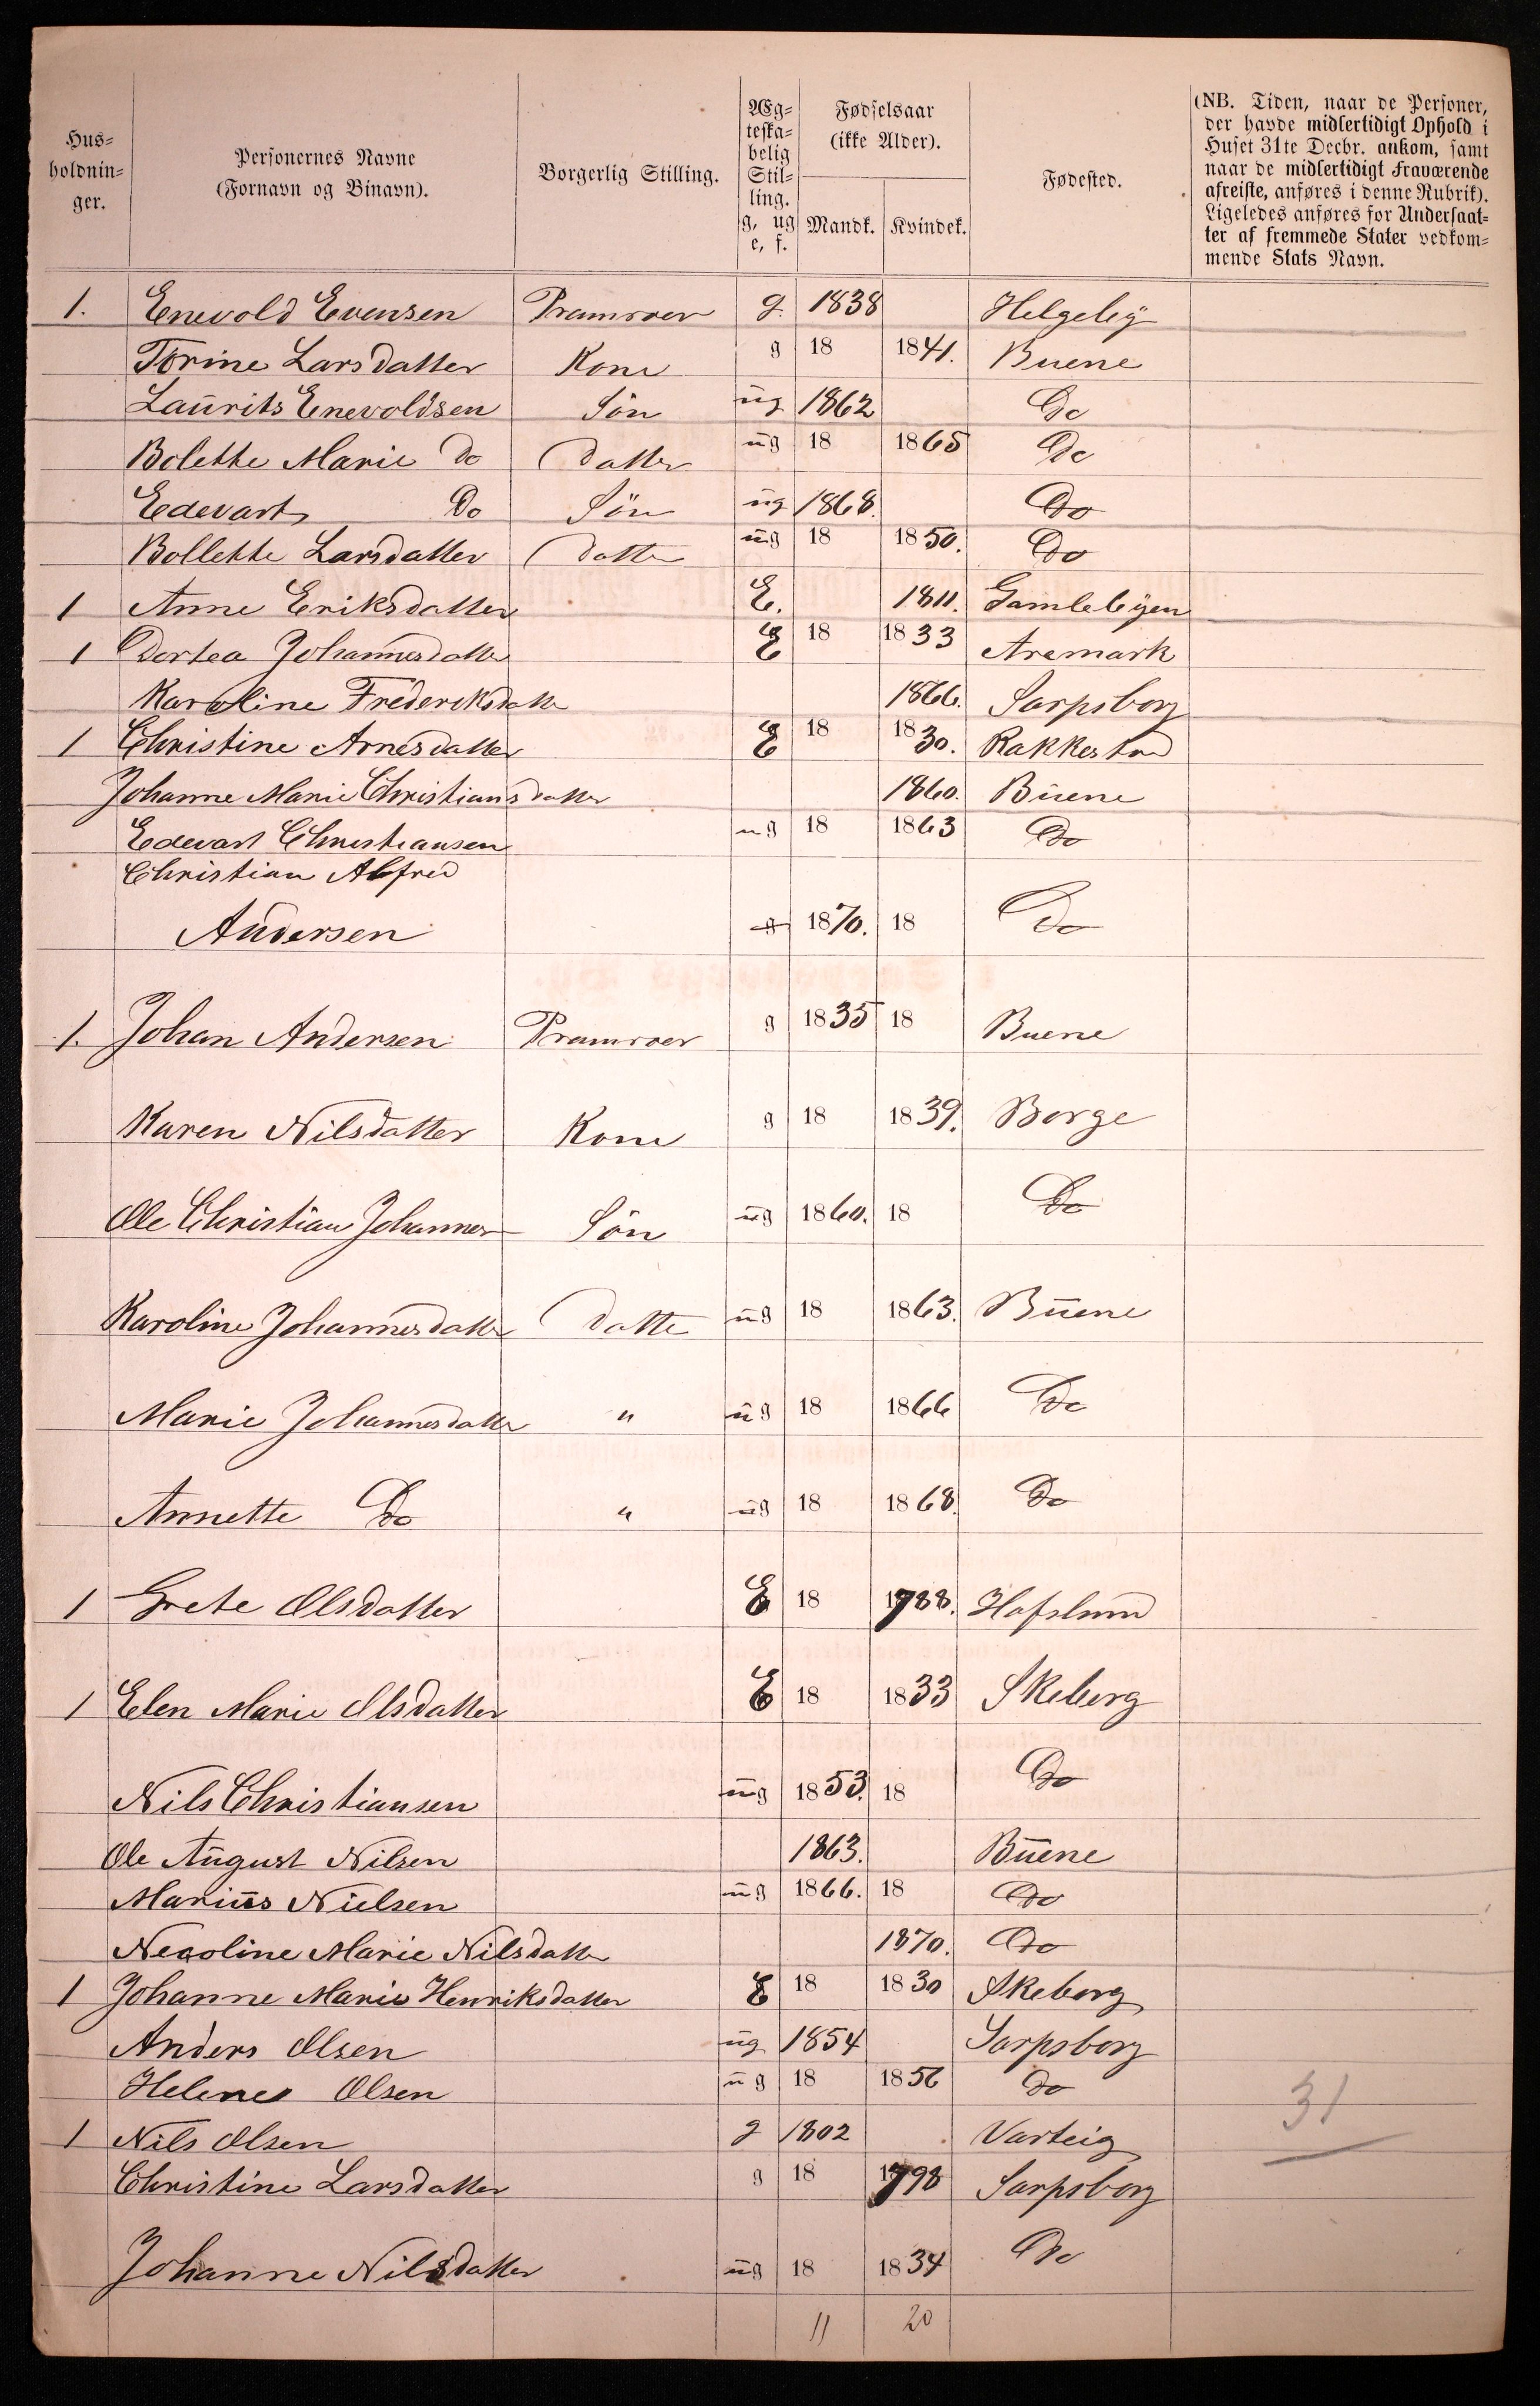 Hus=
holdnin=
ger.
Personernes Navne
(Fornavn og Binavn).
Borgerlig Stilling.
Æg=
teska=
belig
Stil=
ling.
g, ug
e, f.
Fødselsaar
(ikke Alder).
Mandk. Kvindek.
Fødested.
(NB. Tiden, naar de Personer,
der havde midlertidigt Ophold i
Huset 31te Decbr. ankom, samt
naar de midlertidigt fraværende
afreiste, anføres i denne Rubrik).
Ligeledes anføres for Undersaat=
ter af fremmede Stater vedkom=
mende Stats Navn.
1. Enevold Evensen Pramroer g. 1838 Helgebÿ
Torine Larsdatter Kone g 18 1841. Buene
Laurits Enevoldsen Sön ug 1862 Do
Bolette Marie Do Datter ug 18 1865 Do
Edevart Do Sön ug 1868. Do
Bollette Larsdatter Datter ug 18 1850. Do
1 Anne Eriksdatter E. 1811. Gamlebÿen
1 Dortea Johannesdatter E 18 1833 Aremark
Karoline Frederiksdatter 1866. Sarpsborg
1 Christine Arnesdatter E 18 1830. Rakkestad
Johanne Marie Christiansdatter 1860. Buene
Edevart Christiansen ug 18 1863 Do
Christian Alfred
Andersen g 1870. 18 Do
1. Johan Andersen Pramroer g 1835 18 Buene
Karen Nilsdatter Kone g 18 1839. Borge
Ole Christian Johannes Sön ug 1860. 18 Do
Karoline Johannesdatter Datte ug 18 1863. Buene
Marie Johannesdatter " ug 18 1866 Do
Annette Do " ug 18 1868. Do
1 Grete Olsdatter E 18 1788. Hafslund
1 Elen Marie Olsdatter E 18 1833 Skeberg
Nils Christiansen ug 1853. 18 Do
Ole August Nilsen 1863. Buene
Marius Nielsen ug 1866. 18 Do
Necoline Marie Nilsdatter 1870. Do
1 Johanne Marie Henriksdatter E 18 1830 Skeberg
Anders Olsen ug 1854 Sarpsborg
Helene Olsen ug 18 1856 do
31
1 Nils Olsen g 1802 Varteig
Christine Larsdatter g 18 1798 Sarpsborg
Johanne Nilsdatter ug 18 1834 Do
11 20